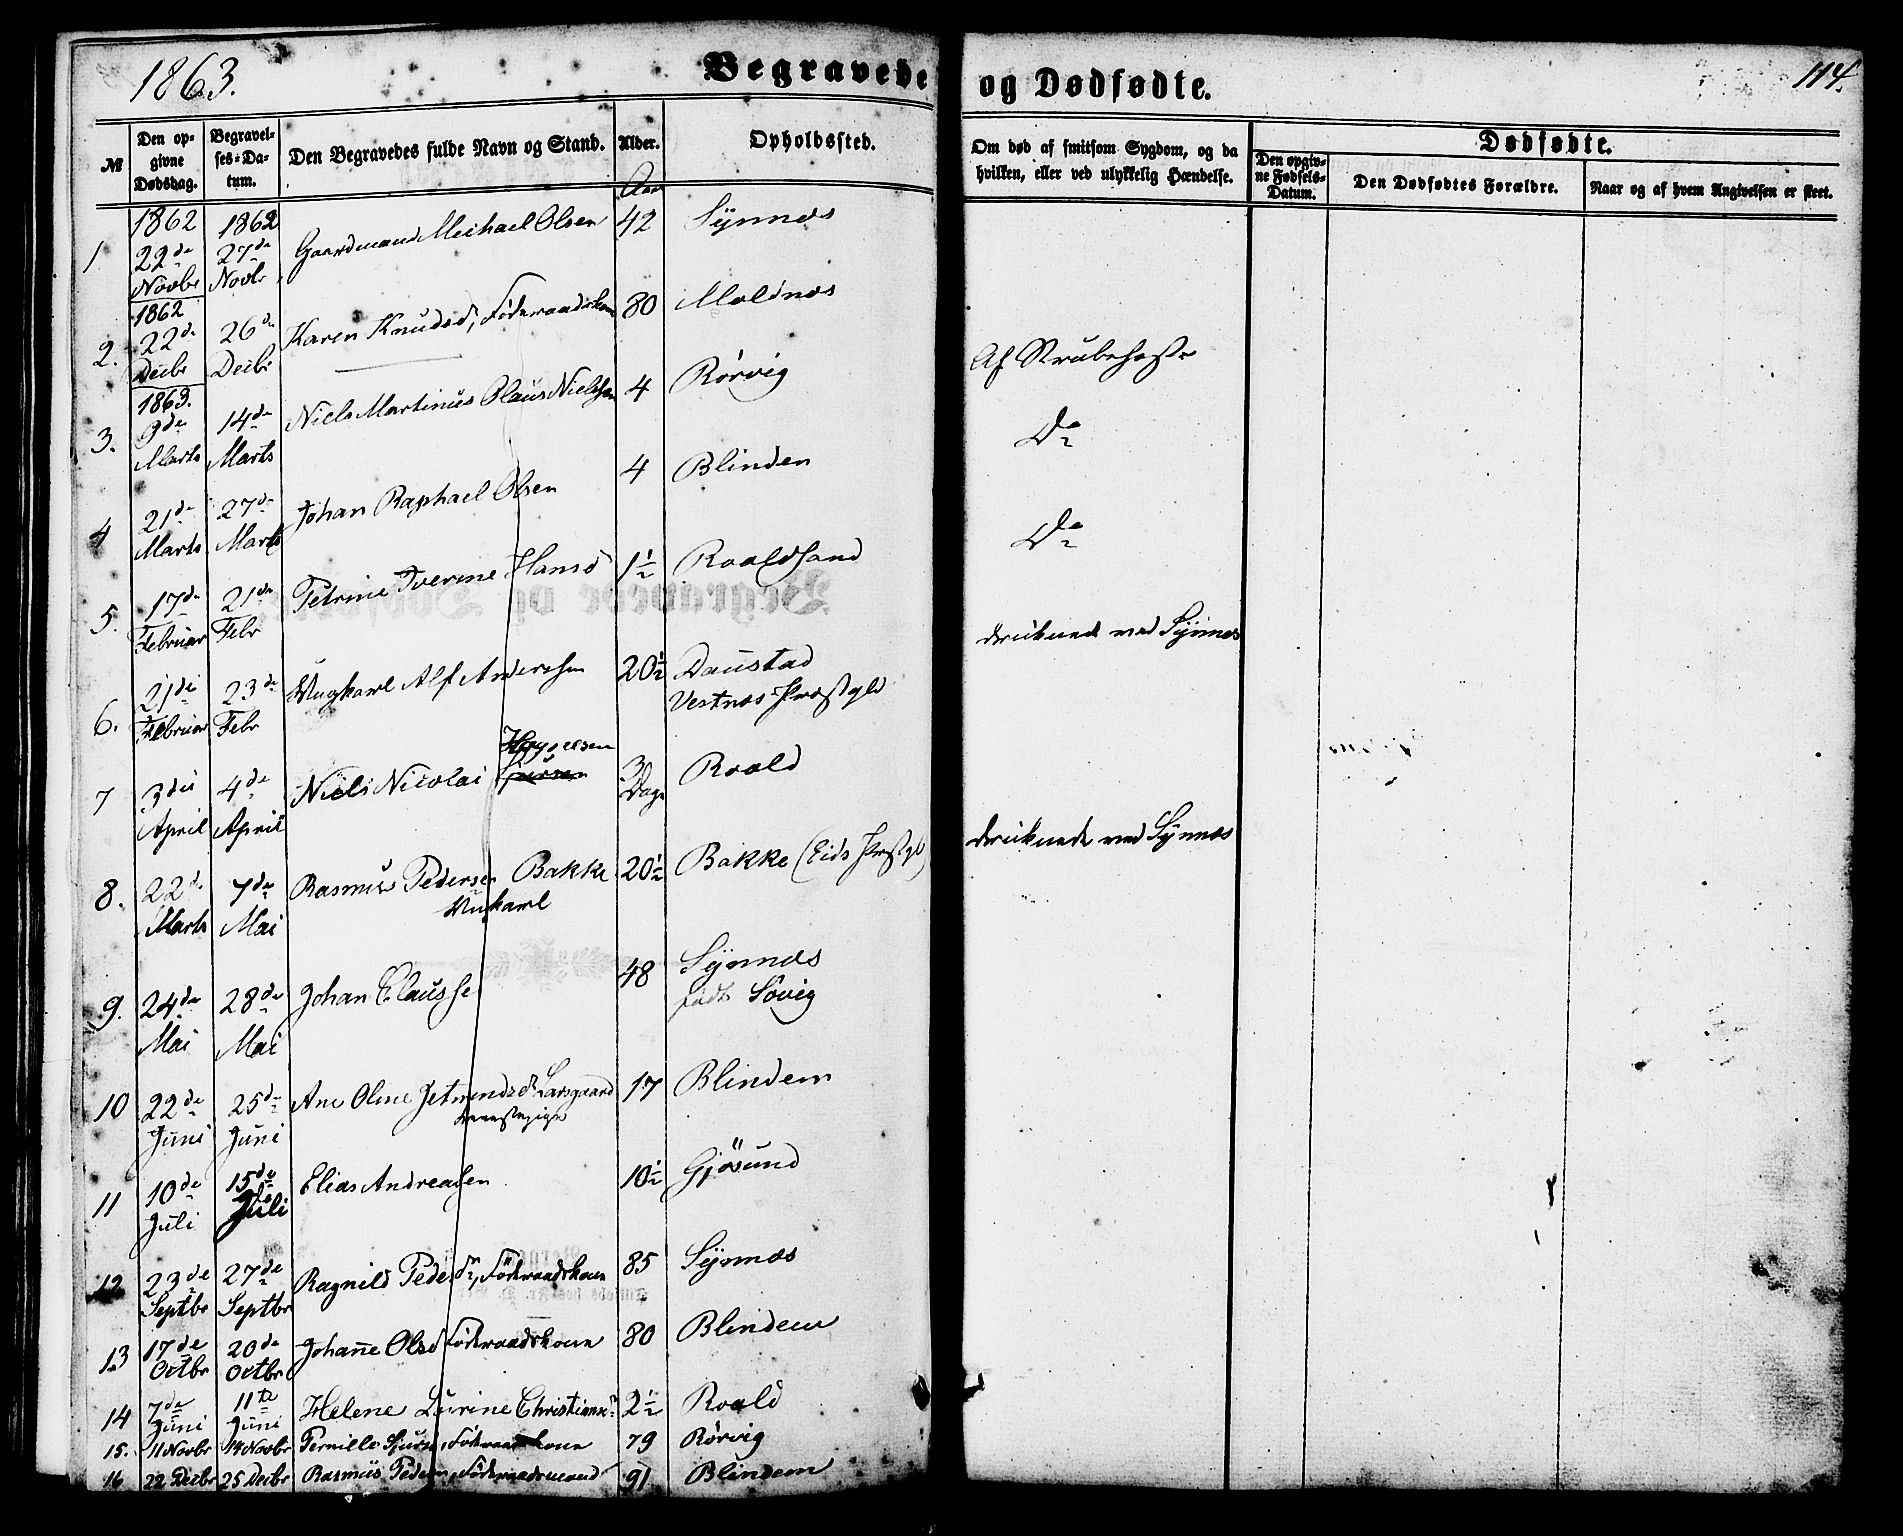 1863.
Begravede og Dødfødte.
114.
№
Den opgivne Dødsdag.
Begravelses-Datum.
Den Begravedes fulde Navn og Stand.
Alder.
Opholdssted.
Om død af smitsom Sygdom, og da hvilken, eller ved ulykkelig Hændelse.
Dødfødte.
Den opgivne Fødsels-Datum.
Den Dødfødtes Forældre.
Naar og af hvem Angivelsen er skeet.
Aar
1 1862 22de Novbr 1862 27de Novbr Gaardmand Michael Olsen 42 Synnæs
2. 1862 22de Decbr 26de Decbr Karen Knudsd, Føderaadskone 80 Moldnæs
3. 1863. 9de Marts 14de Marts Niels Martinus Olaus Nielsen 4 Rørvig Af Strubehoste
4 21de Marts 27de Marts Johan Raphael Olsen 4 Blindem Do
5. 17de Februar 21de Febr Petrine Iverine Hansd 1½ Roaldsand Do
6. 21de Februar 23de Febr Ungkarl Alf Andersen 20½ Daustad
Vestnæs Præstgld druknede ved Synnæs
7 3die April 4de April Niels Nicolai 3 Dage Roald
8. 22de Marts 7de Mai Rasmus Pedersen Bakke 20½ Bakke (Eids Præstgld) druknede ved Synnæs
Ungkarl
9. 24de Mai 28de Mai Johan Clausse 48 Synnæs
født Søvig
10 22de Juni 25de Juni Ane Oline Jetmundsd Larsgaard 17 Blindem
Tjenestepige
11 10de Juli 15de Juli Elias Andreassen 10½ Gjøsund
12 23de Septbr 27de Septbr Ragnild Pedersdr, Føderaadskone 85 Synnæs
13 17de Octbr 20de Octbr Johanne Olsd Føderaadskone 80 Blindem
14 7de Juni 11te Juni Helene Laurine Christiansd 2½ Roald
15. 11 Novbr 14 Novbr Pernille Sjursd, Føderaadskone 79 Rørvig
16 22 Decbr 25 Decbr Rasmus Pedersen, Føderaadsmand 91 Blindem